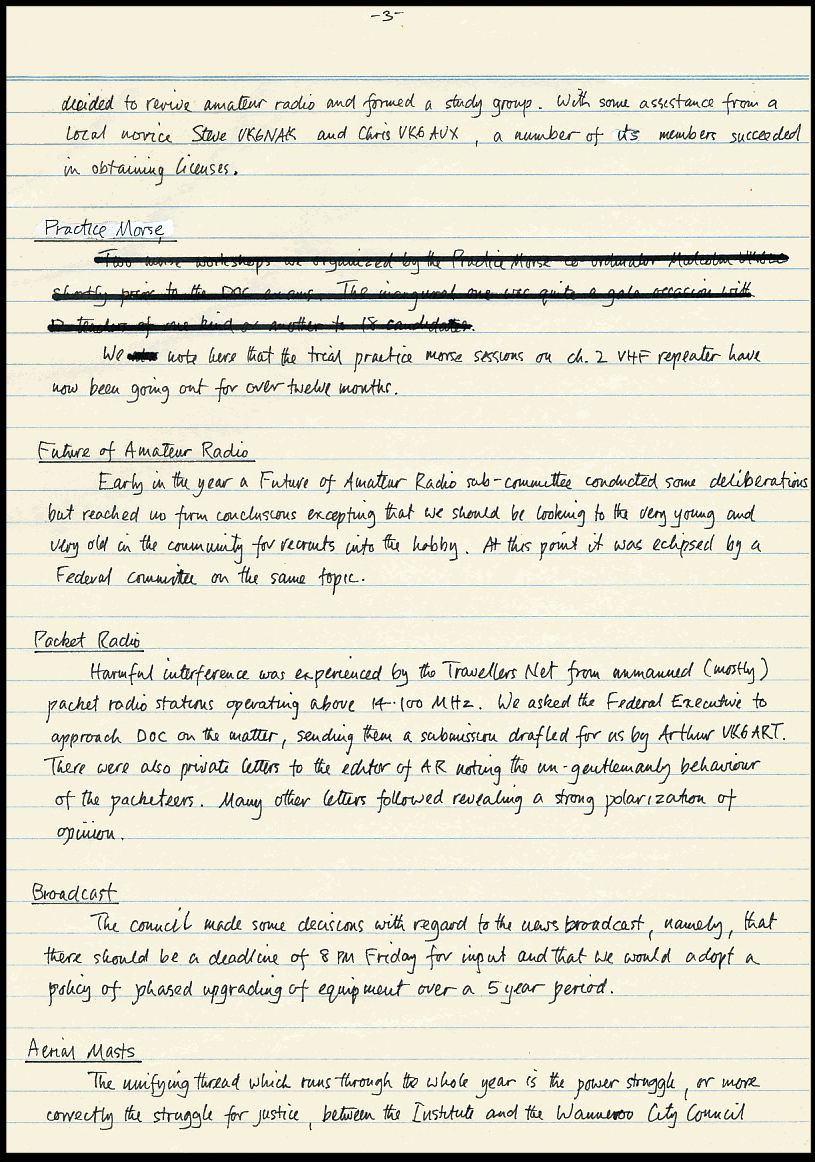 -3-
decided to revive amateur radio and formed a study group. With some assistance from a
local novice Steve VK6NAK and Chris VK6AUX, a number of its members succeeded
in obtaining licenses.
Practice Morse
Two morse workshops we organized by the Practice Morse co-ordinator Malcolm
shortly prior to the DOC exams. The inaugural one was quite a gala occasion with
of one kind or another to 18 candidates.
We note here that the trial practice morse sessions on ch. 2 VHF repeater have
now been going out for over twelve months.
Future of Amateur Radio
Early in the year a Future of Amateur Radio sub-committee conducted some deliberations
but reached no firm conclusions excepting that we should be looking to the very young and
very old in the community for recruits into the hobby. At this point it was eclipsed by a
Federal committee on the same topic.
Packet Radio
Harmful interference was experienced by the Travellers Net from unmanned (mostly)
packet radio stations operating above 14.100 MHz. We asked the Federal Executive to
approach DOC on the matter, sending them a submission drafted for us by Arthur VK6ART.
There were also private letters to the editor of AR noting the un-gentlemanly behaviour
of the packeteers. Many other letters followed revealing a strong polarization of
opinion.
Broadcast
The council made some decisions with regard to the news broadcast, namely, that
there should be a deadline of 8 PM Friday for input and that we would adopt a
policy of phased upgrading of equipment over a 5 year period.
Aerial Masts
The unifying thread which runs through the whole year is the power struggle, or more
correctly the struggle for justice, between the Institute and the Wanneroo City Council